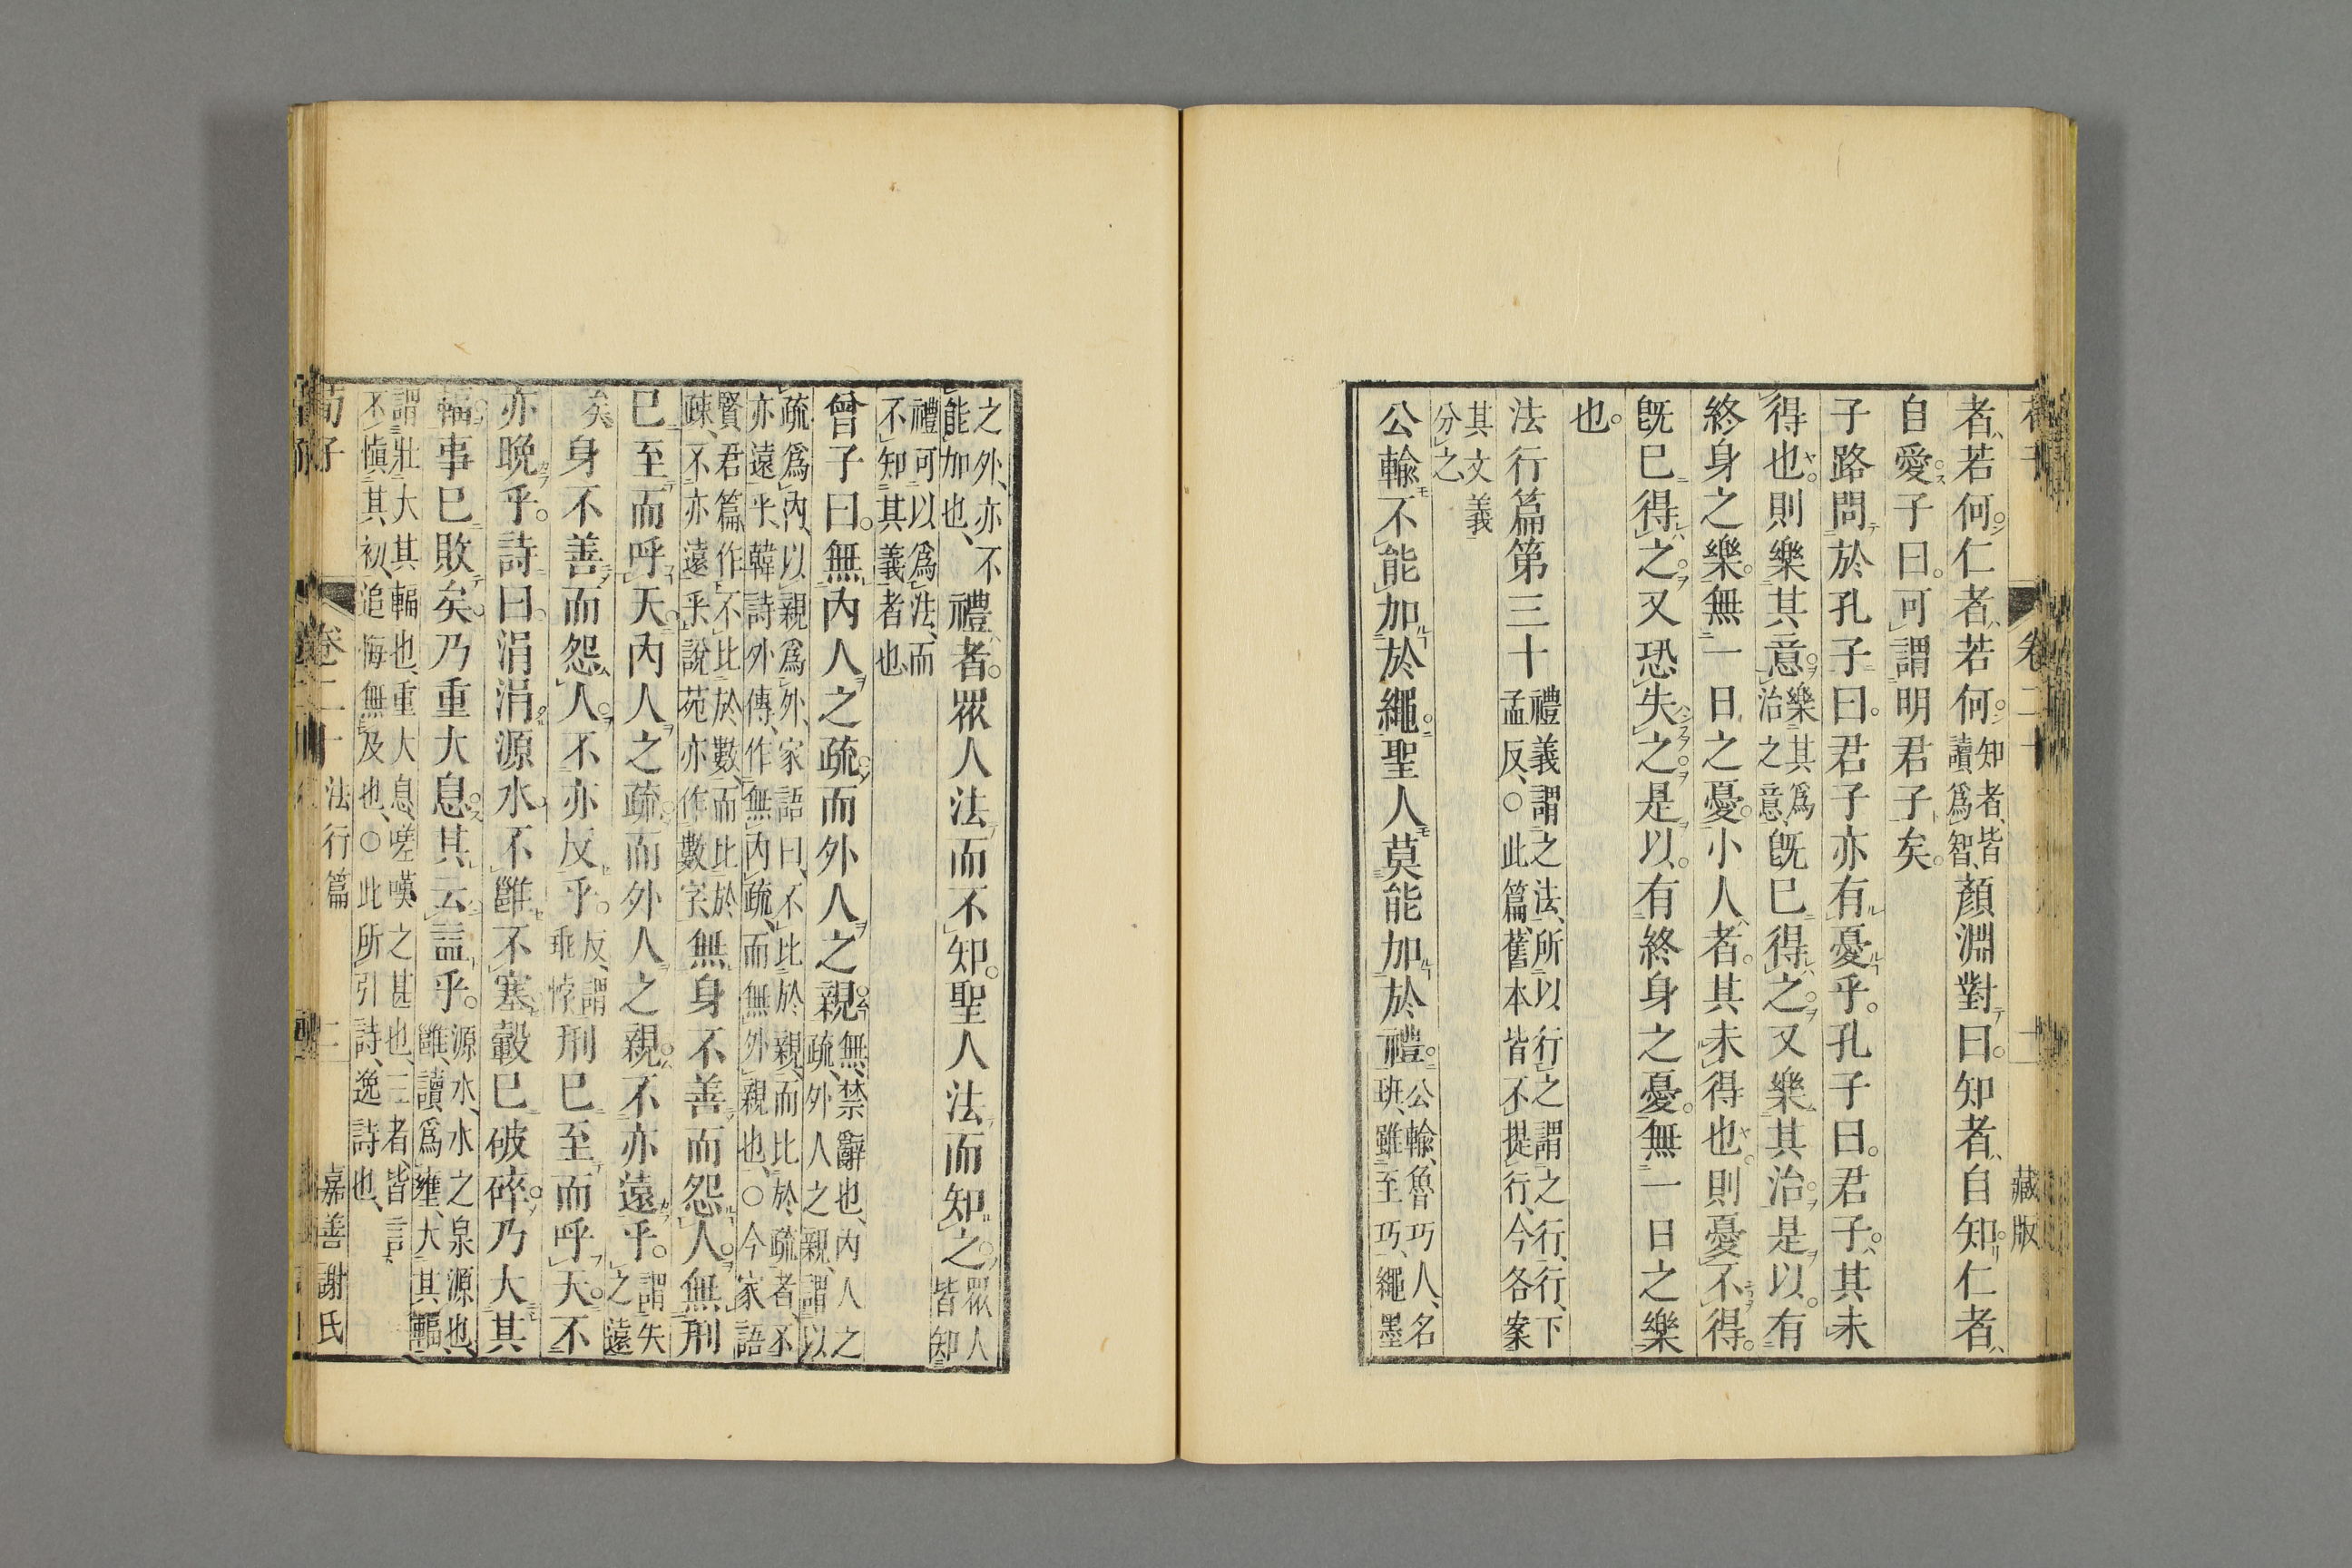 卷二十
藏版
者若何仁者若何知者皆讀爲智顏淵對曰知者自知仁者
自愛子曰可謂明君子矣
子路問於孔子曰君子亦有憂乎孔子曰君子其未
得也則樂其意樂其爲治之意既已得之又樂其治是以有
終身之樂無一日之憂小人者其未得也則憂不得
既已得之又恐失之是以有終身之憂無一日之樂
也
法行篇第三十禮義謂之法所以行之謂之行行下孟反○此篇舊本皆不提行今各案
其文義分之
公輸不能加於繩聖人莫能加於禮公輸魯巧人名班雖至巧繩墨
之外亦不能加也禮者眾人法而不知聖人法而知之眾人皆知
禮可以爲法而不知其義者也
曾子曰無內人之疏而外人之親無禁辭也內人之疏外人之親謂以
疏爲內以親爲外家語曰不比於親而比於疏者不亦遠乎韓詩外傳作無內疏而無外親也○今家語
賢君篇作不比於數而比於疎不亦遠乎說苑亦作數字無身不善而怨人無刑
已至而呼天內人之疏而外人之親不亦遠乎謂失之遠
矣身不善而怨人不亦反乎反謂乖悖刑已至而呼天不
亦晚乎詩曰涓涓源水不雝不塞轂已破碎乃大其
輻事已敗矣乃重大息其云益乎源水水之泉源也雝讀爲壅大其輻
謂壯大其輻也重大息嗟嘆之甚也三者皆言不愼其初追悔無及也○此所引詩逸詩也
荀子
卷二十
法行篇
二
嘉善謝氏